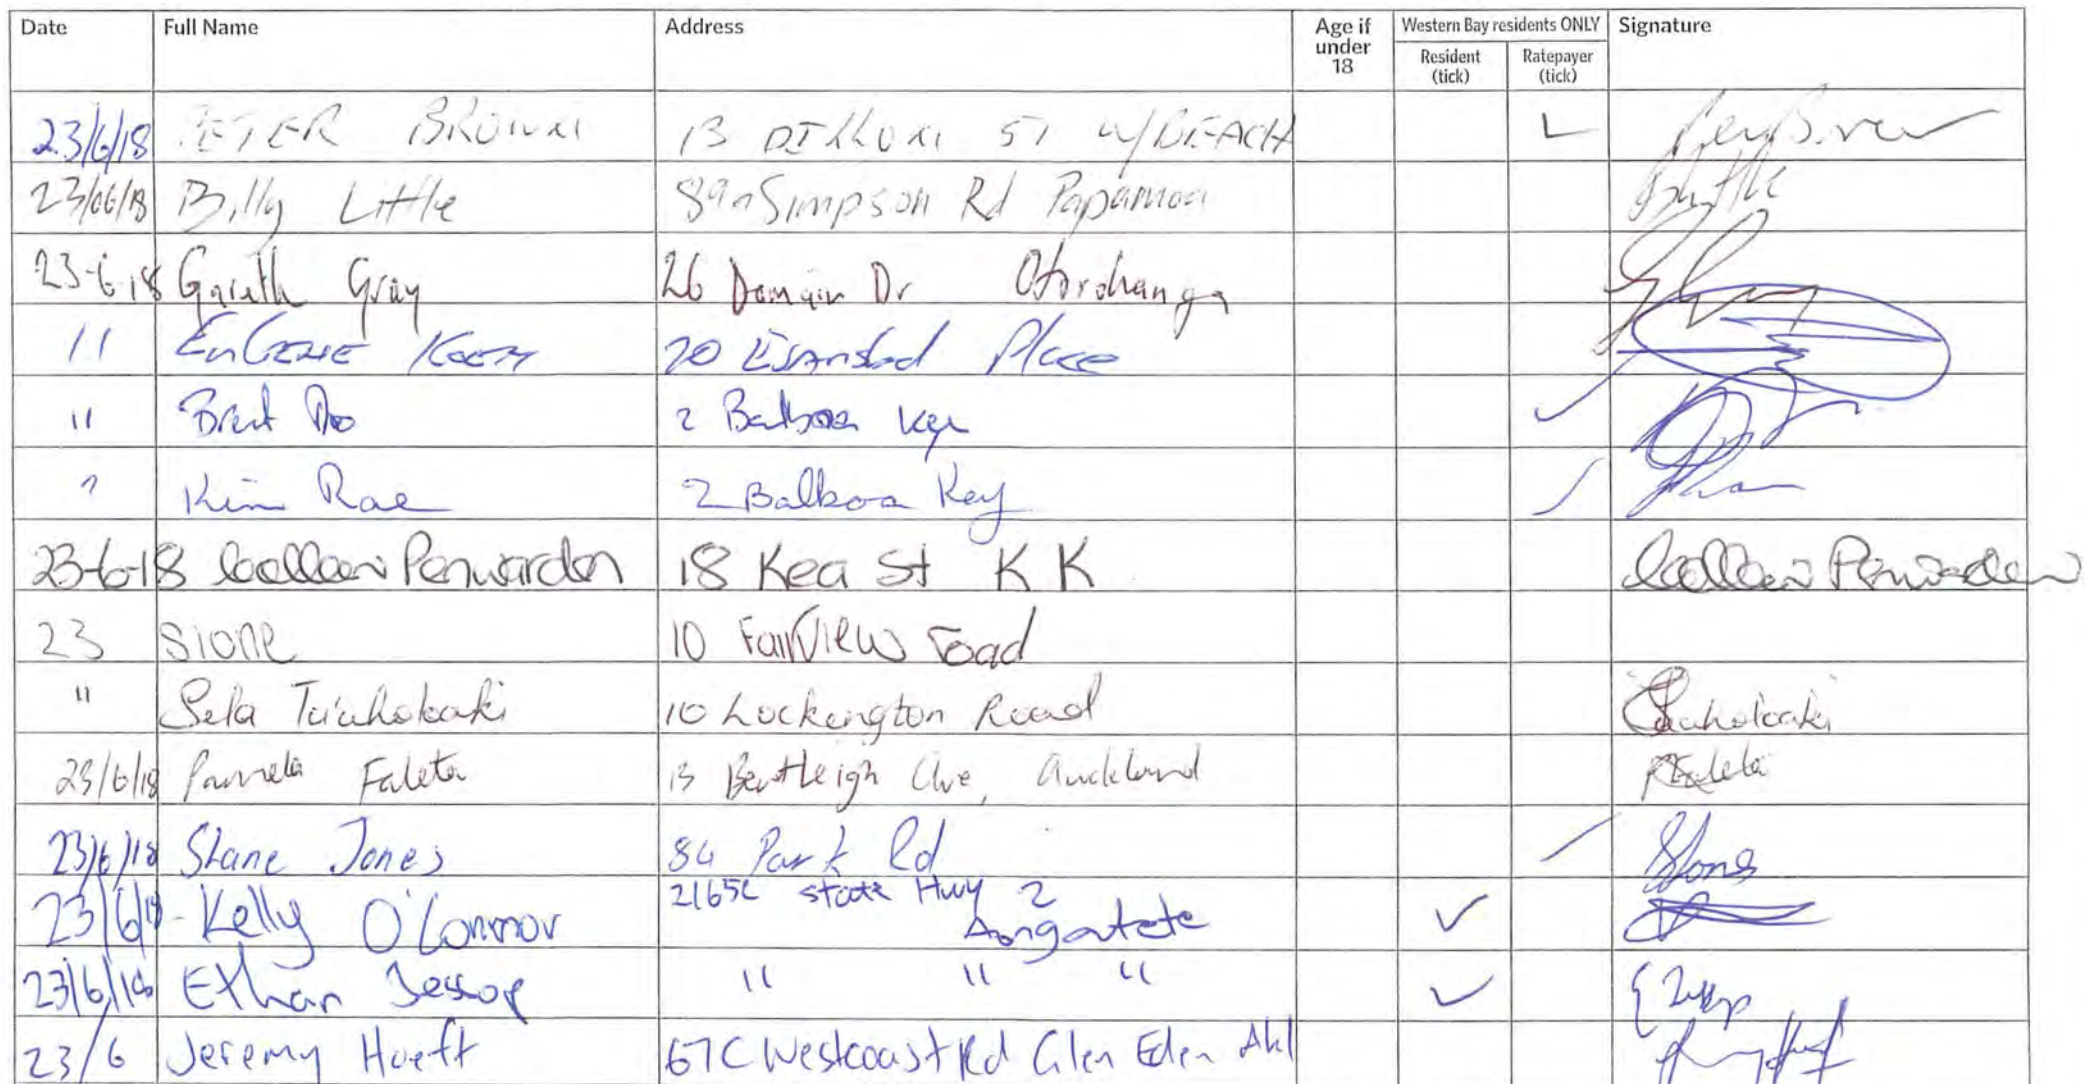 Date Full Name Address Age if under 18 Western Bay residents ONLY Signature
Resident (tick) Ratepayer (tick)
23/6/18 PETER BROWN 13 St W/BEACH
23/06/18 Billy Little Simpson Rd Papamoa
23-6-18 Gareth Gray 26 Domain Dr Otorohanga
11 EUGENE 20 Place
11 Brent 2 Balboa Key
Kim Rae 2 Balboa Key
23-6-18 Penwarden 18 Kea St K K
23 Sione 10 Fairview road
11 Sela 10 Lockington Road
23/6/18 Pamela Faleta 13 Bentleigh Ave, Auckland
23/6/18 Shane Jones 84 Park Rd
23/6/18 Kelly O'Connor 2165C State Hwy 2
Aongatete
23/6/18 Ethan Jessop 11 11 11
23/6 Jeremy Hoeft 67C Westcoast Rd Glen Eden Akl